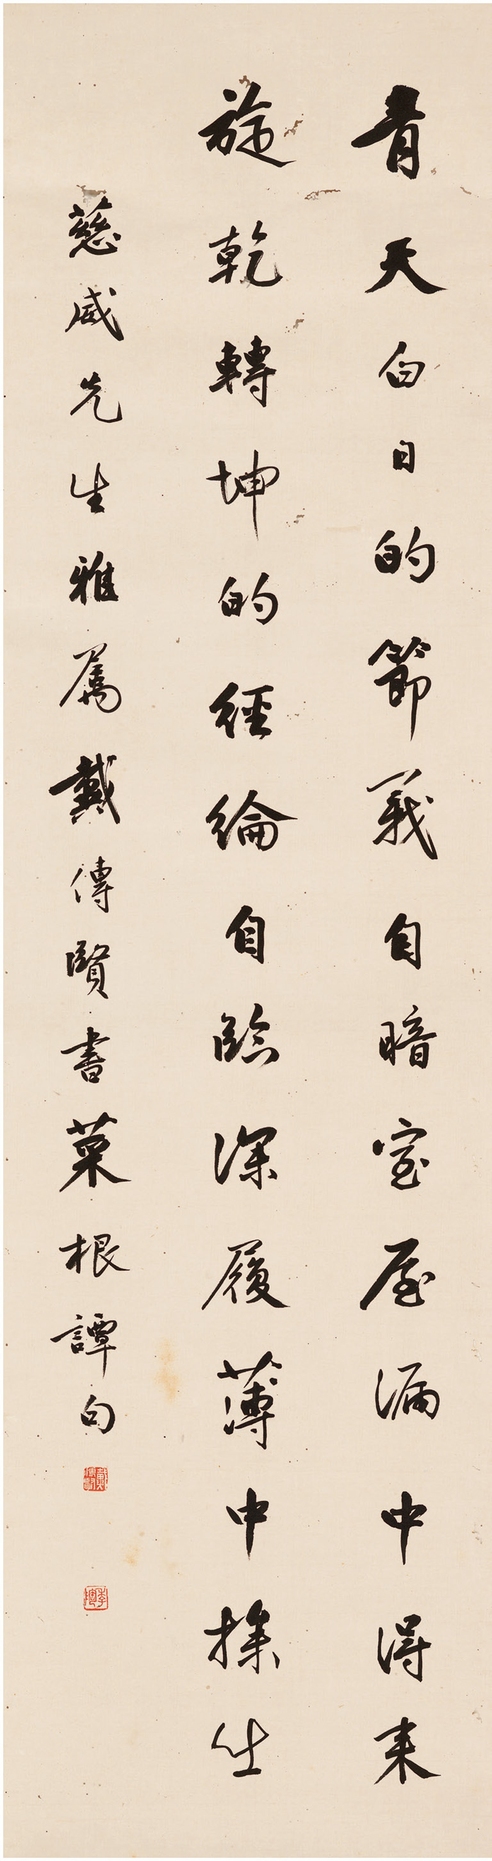 青天白日的節義自暗室屋漏中得来
旋乾轉坤的經綸自臨深履薄中操出
慈威先生雅屬戴傳賢書菜根譚句